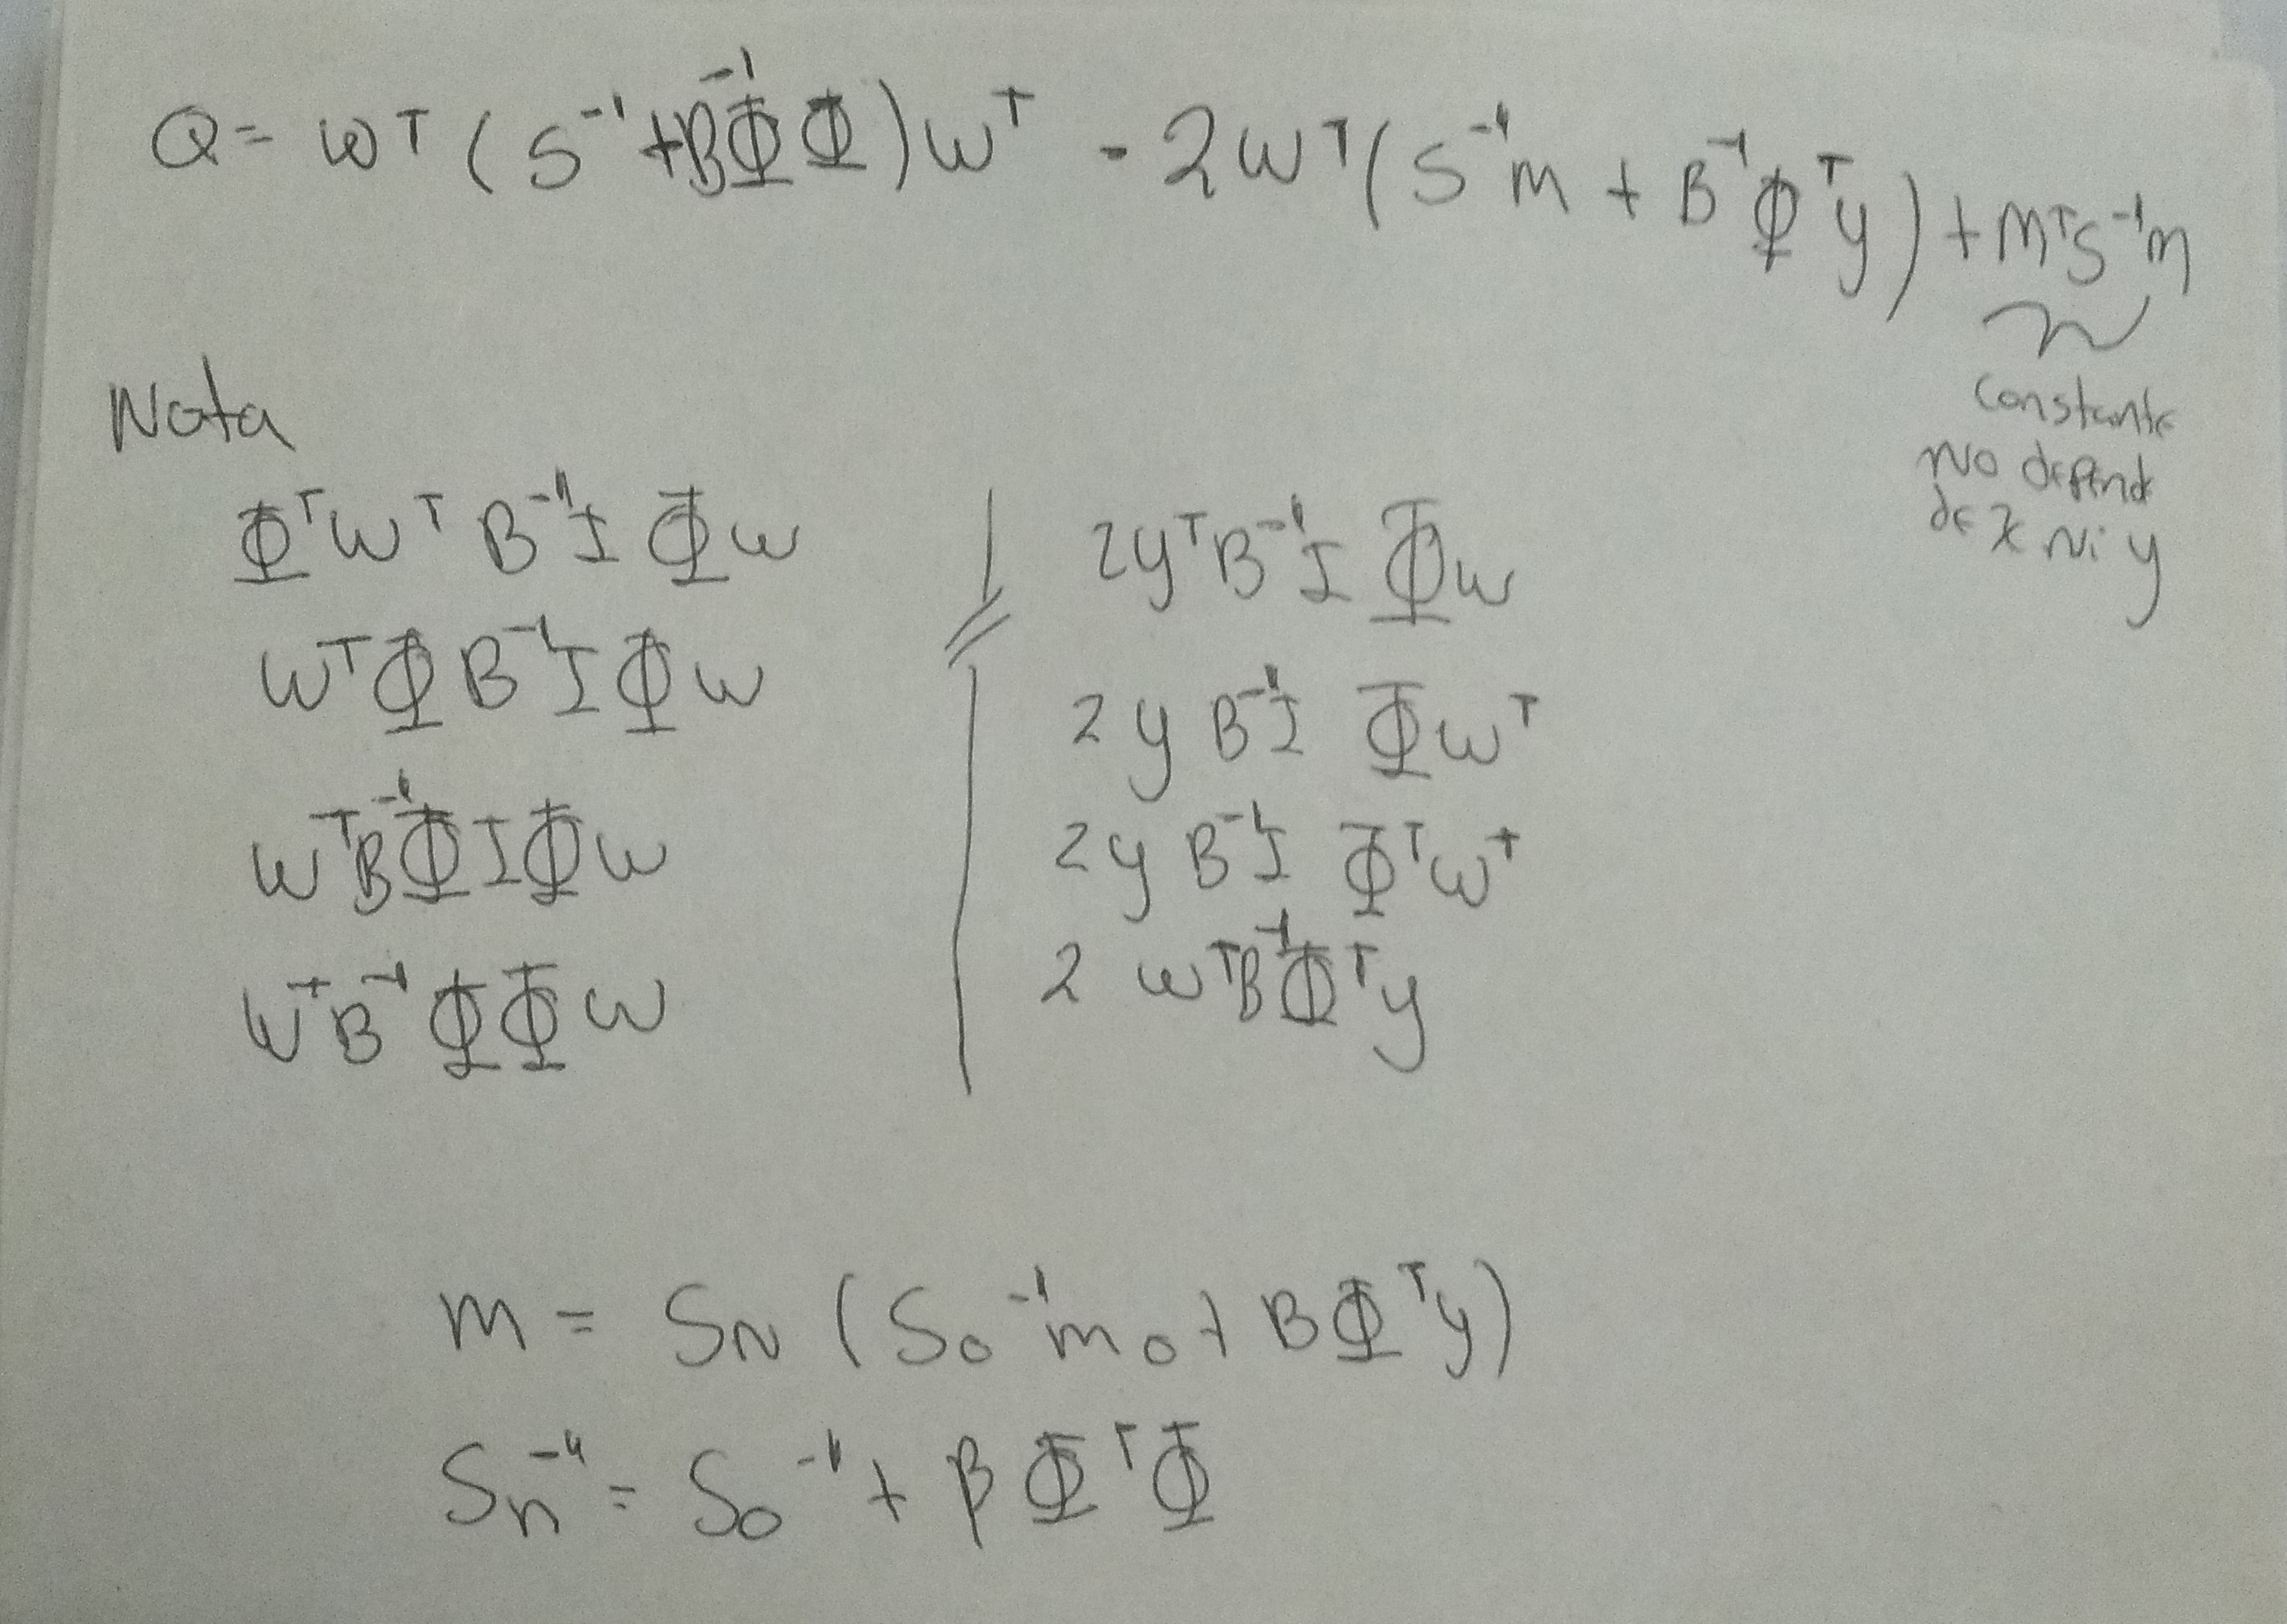 Q = wᵀ (S⁻¹ + B⁻¹ΦΦ) wᵀ - 2wᵀ (S⁻¹m + B⁻¹Φᵀy) + mᵀS⁻¹m
constante
no depende
de x ni y
Nota
Φᵀwᵀ B⁻¹I Φw
wᵀΦB⁻¹IΦw
wᵀB⁻¹ΦIΦw
wᵀB⁻¹ΦΦw
2yᵀB⁻¹I Φw
2y B⁻¹I Φwᵀ
2y B⁻¹I Φᵀwᵀ
2 wᵀB⁻¹Φᵀy
m = S_N (S₀⁻¹m₀ + BΦᵀy)
Sₙ⁻¹ = S₀⁻¹ + β ΦᵀΦ